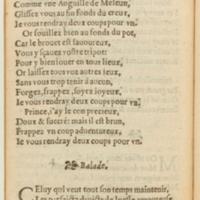 Comme vne Anguille de Meleun,
Glissez vous au fin fonds du creux,
Ie vous rendray deux coups pour vn.
Or fouillez bien au fonds du pot,
Car le brouet est sauoureux,
Vous y sçauez vostre tripot:
Pour y bien iouer en tous lieux,
Or laissez tous vos autres ieux,
Sans vous trop tenir à aucun,
Forgez, frappez, soyez ioyeux,
Ie vous rendray deux coups pour vn.
Prince, i'ay le con precieux,
Doux & succré: mais il est brun,
Frappez vn coup aduentureux,
Ie vous rendray deux coups pour vn.
Balade.
Celuy qui veut tout son temps maintenir,